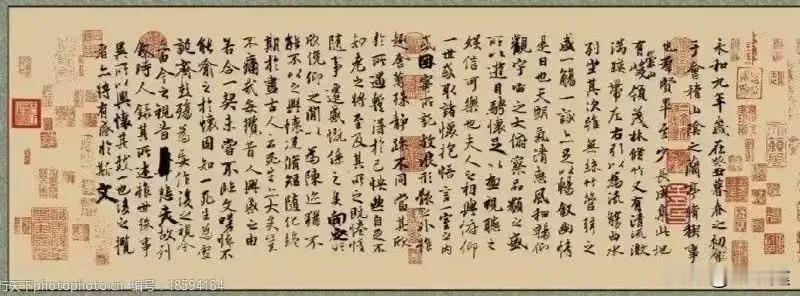 永和九年歲在癸丑暮春之初會
于會稽山陰之蘭亭脩禊事
也羣賢畢至少長咸集此地
有崇山峻領茂林脩竹又有清流激
湍暎帶左右引以為流觴曲水
列坐其次雖無絲竹管弦之
盛一觴一詠亦足以暢敘幽情
是日也天朗氣清惠風和暢仰
觀宇宙之大俯察品類之盛
所以遊目騁懷足以極視聽之
娛信可樂也夫人之相與俯仰
一世或取諸懷抱悟言一室之內
或因寄所託放浪形骸之外雖
趣舍萬殊靜躁不同當其欣
於所遇蹔得於己怏然自足不
知老之將至及其所之既惓情
隨事遷感慨係之矣向之所
欣俛仰之閒以為陳迹猶不
能不以之興懷況脩短隨化終
期於盡古人云死生亦大矣豈
不痛哉每攬昔人興感之由
若合一契未嘗不臨文嗟悼不
能喻之於懷固知一死生為虛
誕齊彭殤為妄作後之視今
亦由今之視昔悲夫故列
敘時人錄其所述雖世殊事
異所以興懷其致一也後之攬
者亦將有感於斯文
行天下photophoto.cn 编号：18594184